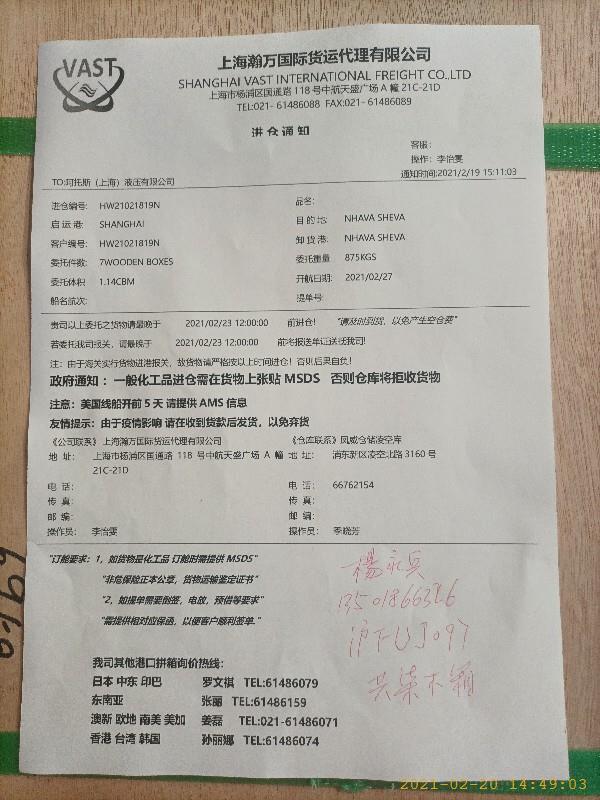 VAST
上海瀚万国际货运代理有限公司
SHANGHAI VAST INTERNATIONAL FREIGHT CO.,LTD
上海市杨浦区国通路 118 号中航天盛广场 A 幢 21C-21D
TEL:021- 61486088 FAX:021- 61486089
进仓通知
客服:
操作: 李怡雯
通知时间:2021/2/19 15:11:03
TO:珂托斯（上海）液压有限公司
进仓编号: HW21021819N 品名:
启运港: SHANGHAI 目的地: NHAVA SHEVA
客户编号: HW21021819N 卸货港: NHAVA SHEVA
委托件数: 7WOODEN BOXES 委托重量 875KGS
委托体积 1.14CBM 开航日期: 2021/02/27
船名航次: 提单号:
贵司以上委托之货物请最晚于 2021/02/23 12:00:00 前进仓! "请及时到货, 以免产生空仓费"
若委托我司报关, 请最晚于 2021/02/23 12:00:00 前将报送单证送抵我司!
注: 由于海关实行货物进港报关, 故货物请严格按以上时间进仓! 否则后果自负!
政府通知: 一般化工品进仓需在货物上张贴 MSDS 否则仓库将拒收货物
注意: 美国线船开前 5 天 请提供 AMS 信息
友情提示: 由于疫情影响 请在收到货款后发货, 以免弃货
《公司联系》上海瀚万国际货运代理有限公司 《仓库联系》凤威仓储凌空库
地 址: 上海市杨浦区国通路 118 号中航天盛广场 A 幢 21C-21D 地 址: 浦东新区凌空北路 3160 号
电 话: 电 话: 66762154
传 真: 传 真:
邮 编: 邮 编:
操作员: 李怡雯 操作员: 季晓芳
"订舱要求: 1, 如货物是化工品 订舱时需提供 MSDS"
"非危保险正本公章, 货物运输鉴定证书"
"2, 如提单需要倒签, 电放, 预借等要求"
"需提供相对应保函, 以便客户顺利签单."
楊永兵
13501866326
沪FUJ097
共柒木箱
我司其他港口拼箱询价热线:
日本 中东 印巴 罗文祺 TEL:61486079
东南亚 张丽 TEL:61486159
澳新 欧地 南美 美加 姜磊 TEL:021-61486071
香港 台湾 韩国 孙丽娜 TEL:61486074
2021-02-20 14:49:03